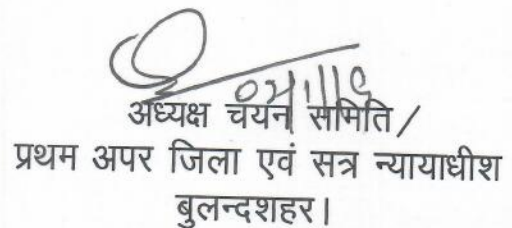 अध्यक्ष चयन समिति/
प्रथम अपर जिला एवं सत्र न्यायाधीश
बुलन्दशहर।